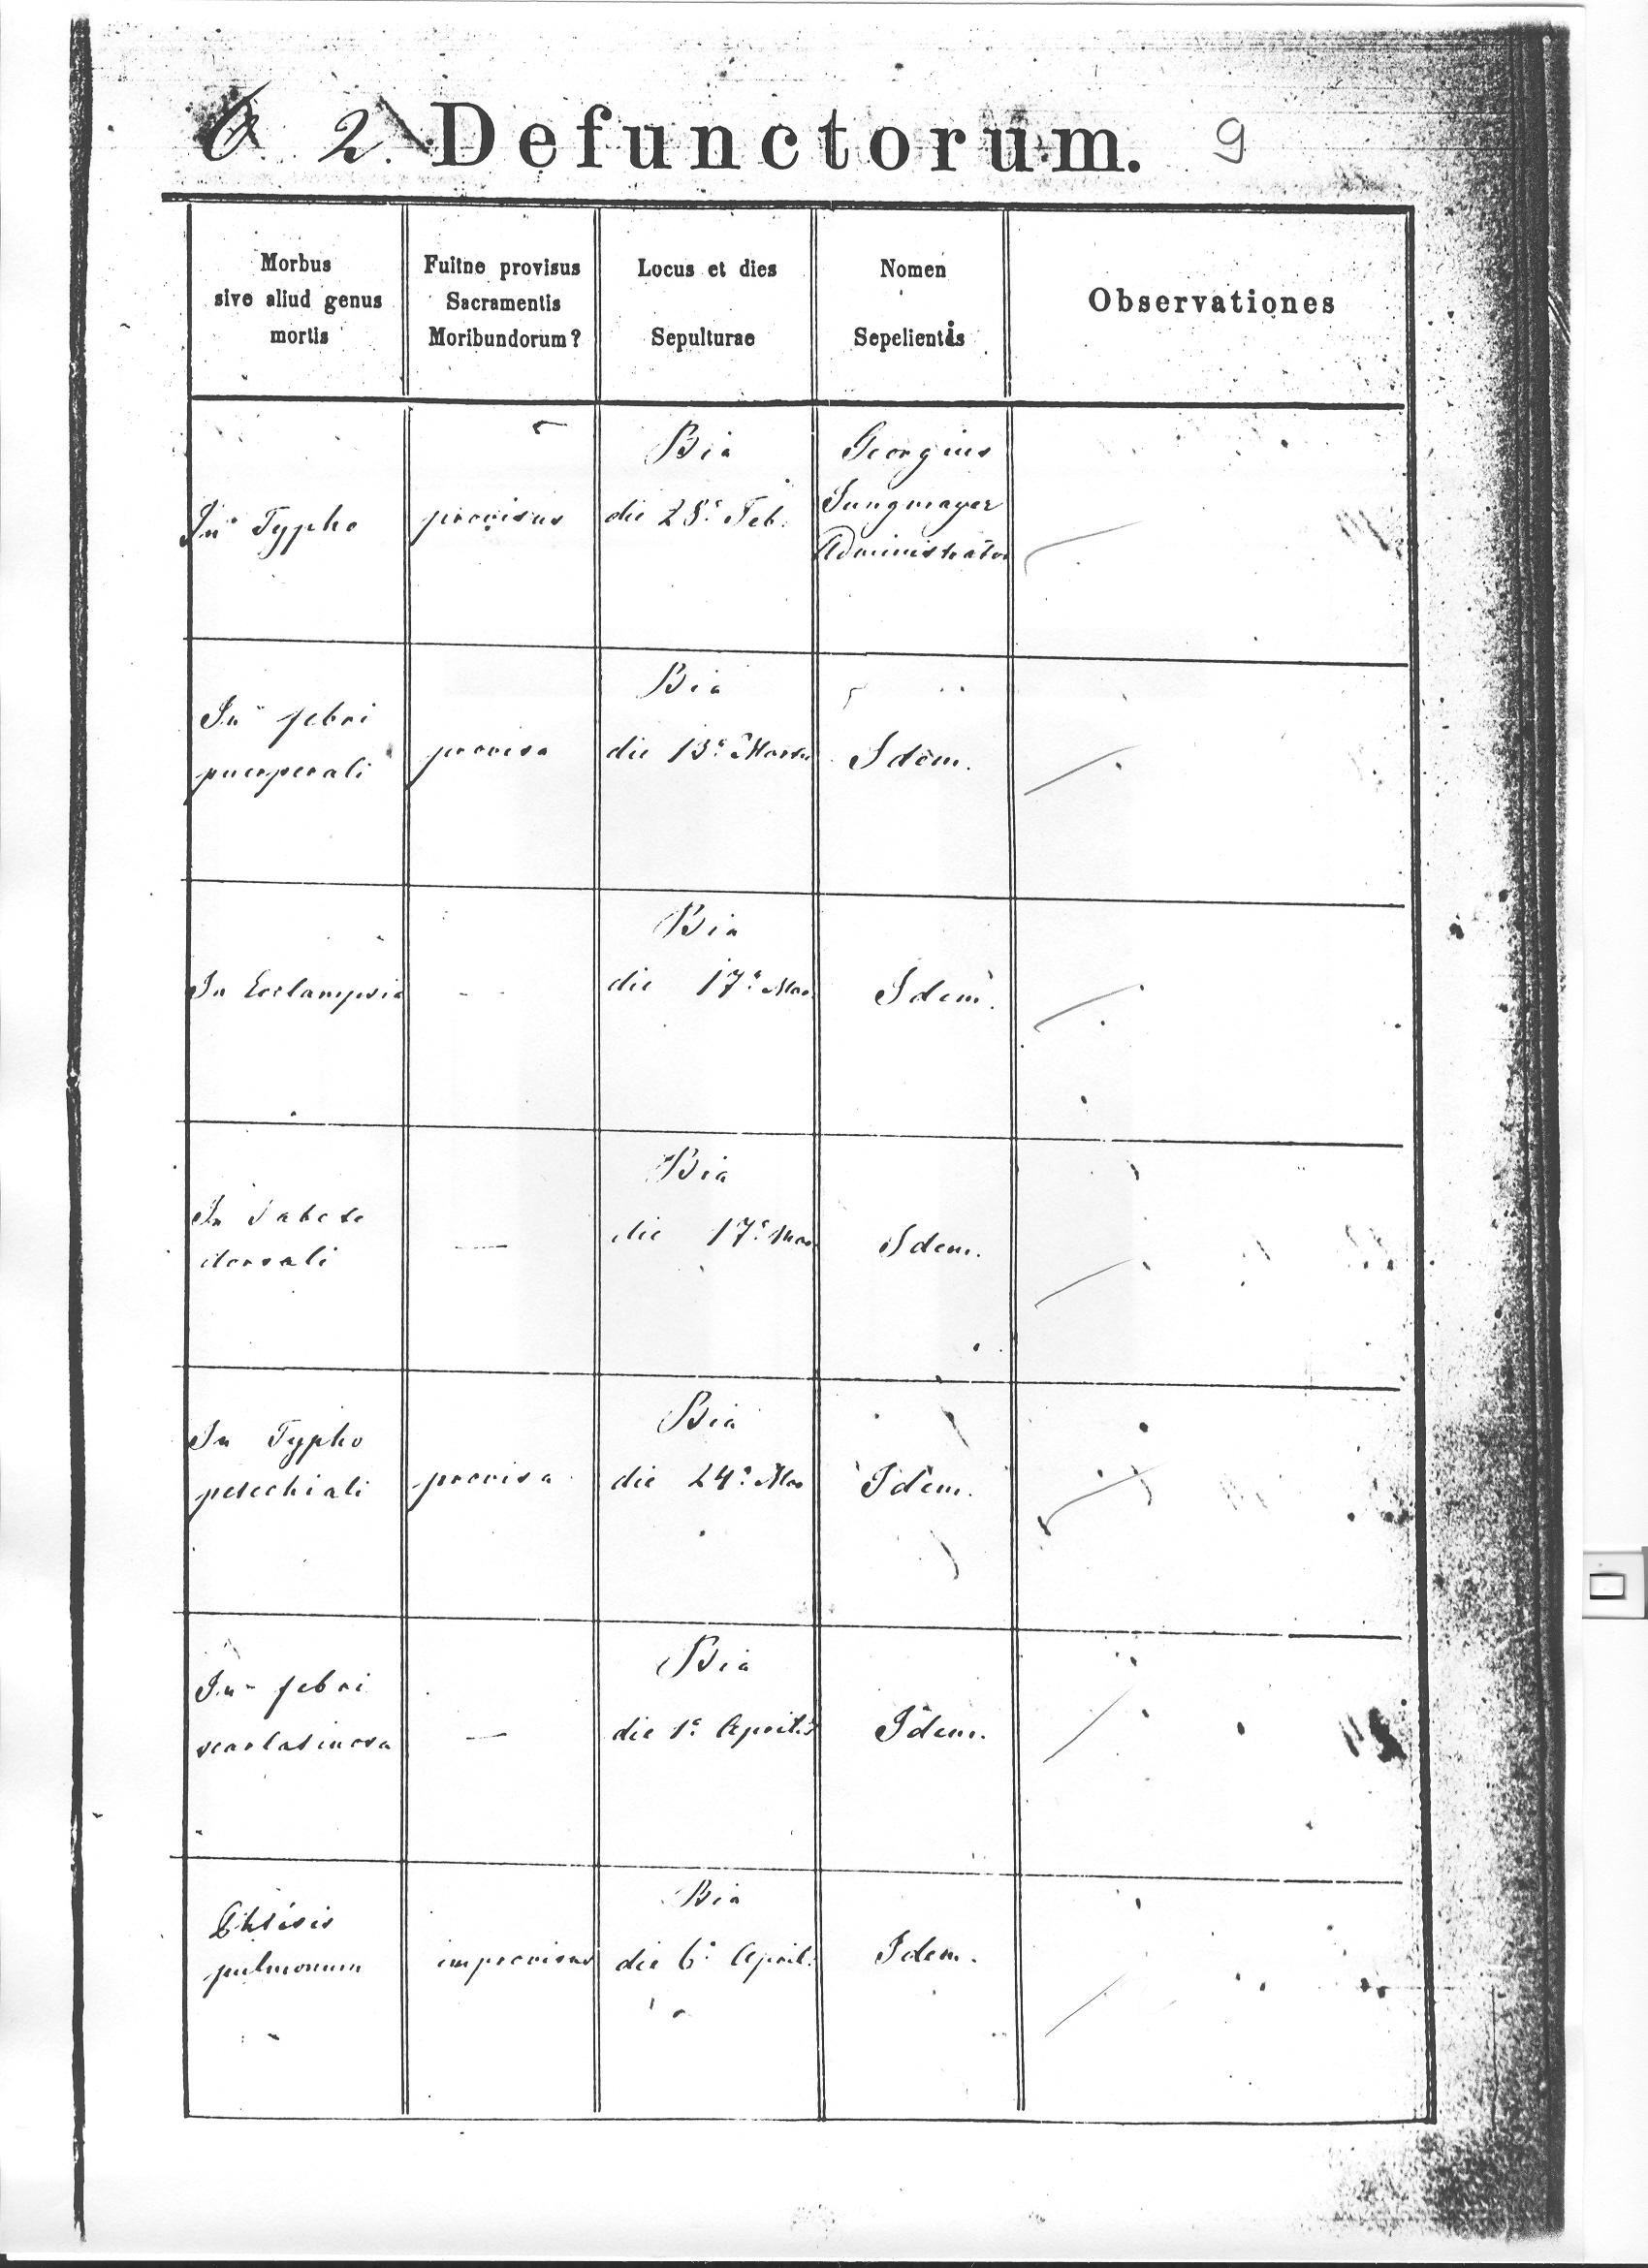 2. Defunctorum. 9
Morbus
sive aliud genus
mortis
Fuitne provisus
Sacramentis
Moribundorum?
Locus et dies
Sepulturae
Nomen
Sepelientis
Observationes
In Typho
provisus
Bia
die 28a Feb.
Georgius
Jungmayer
Administrator
In febri
puerperali
provisa
Bia
die 13a Martii
Idem.
In Ecclampsia
- -
Bia
die 17a Mar
Idem.
In Tabe
dorsali
—
Bia
die 17a Mar
Idem.
In Typho
petechiali
provisa
Bia
die 24a Mar
Idem.
In febri
scarlatinosa
—
Bia
die 1a Aprilis
Idem.
pulmonum
improvisus
Bia
die 6a April.
Idem.